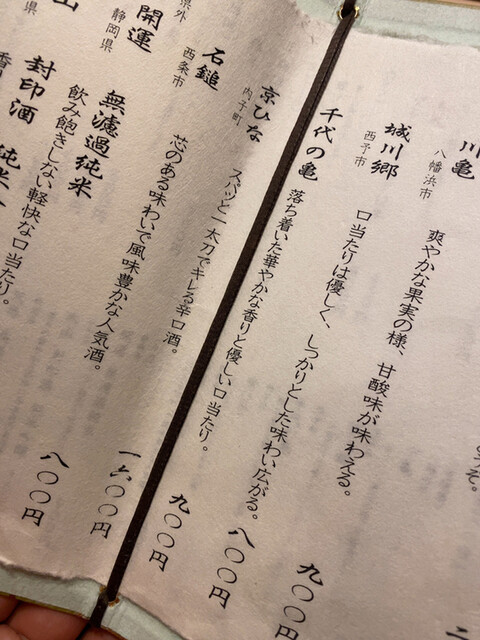 うそ。
二
川亀
八幡浜市
爽やかな果実の様、甘酸味が味わえる。
九〇〇円
城川郷
西予市
口当たりは優しく、しっかりとした味わい広がる。
八〇〇円
千代の亀
落ち着いた華やかな香りと優しい口当たり。
九〇〇円
京ひな
内子町
スパッと一太刀でキレる辛口酒。
一六〇〇円
石鎚
西条市
芯のある味わいで風味豊かな人気酒。
八〇〇円
県外
開運
静岡県
無濾過純米
飲み飽きしない軽快な口当たり。
山
県
封印酒 純米